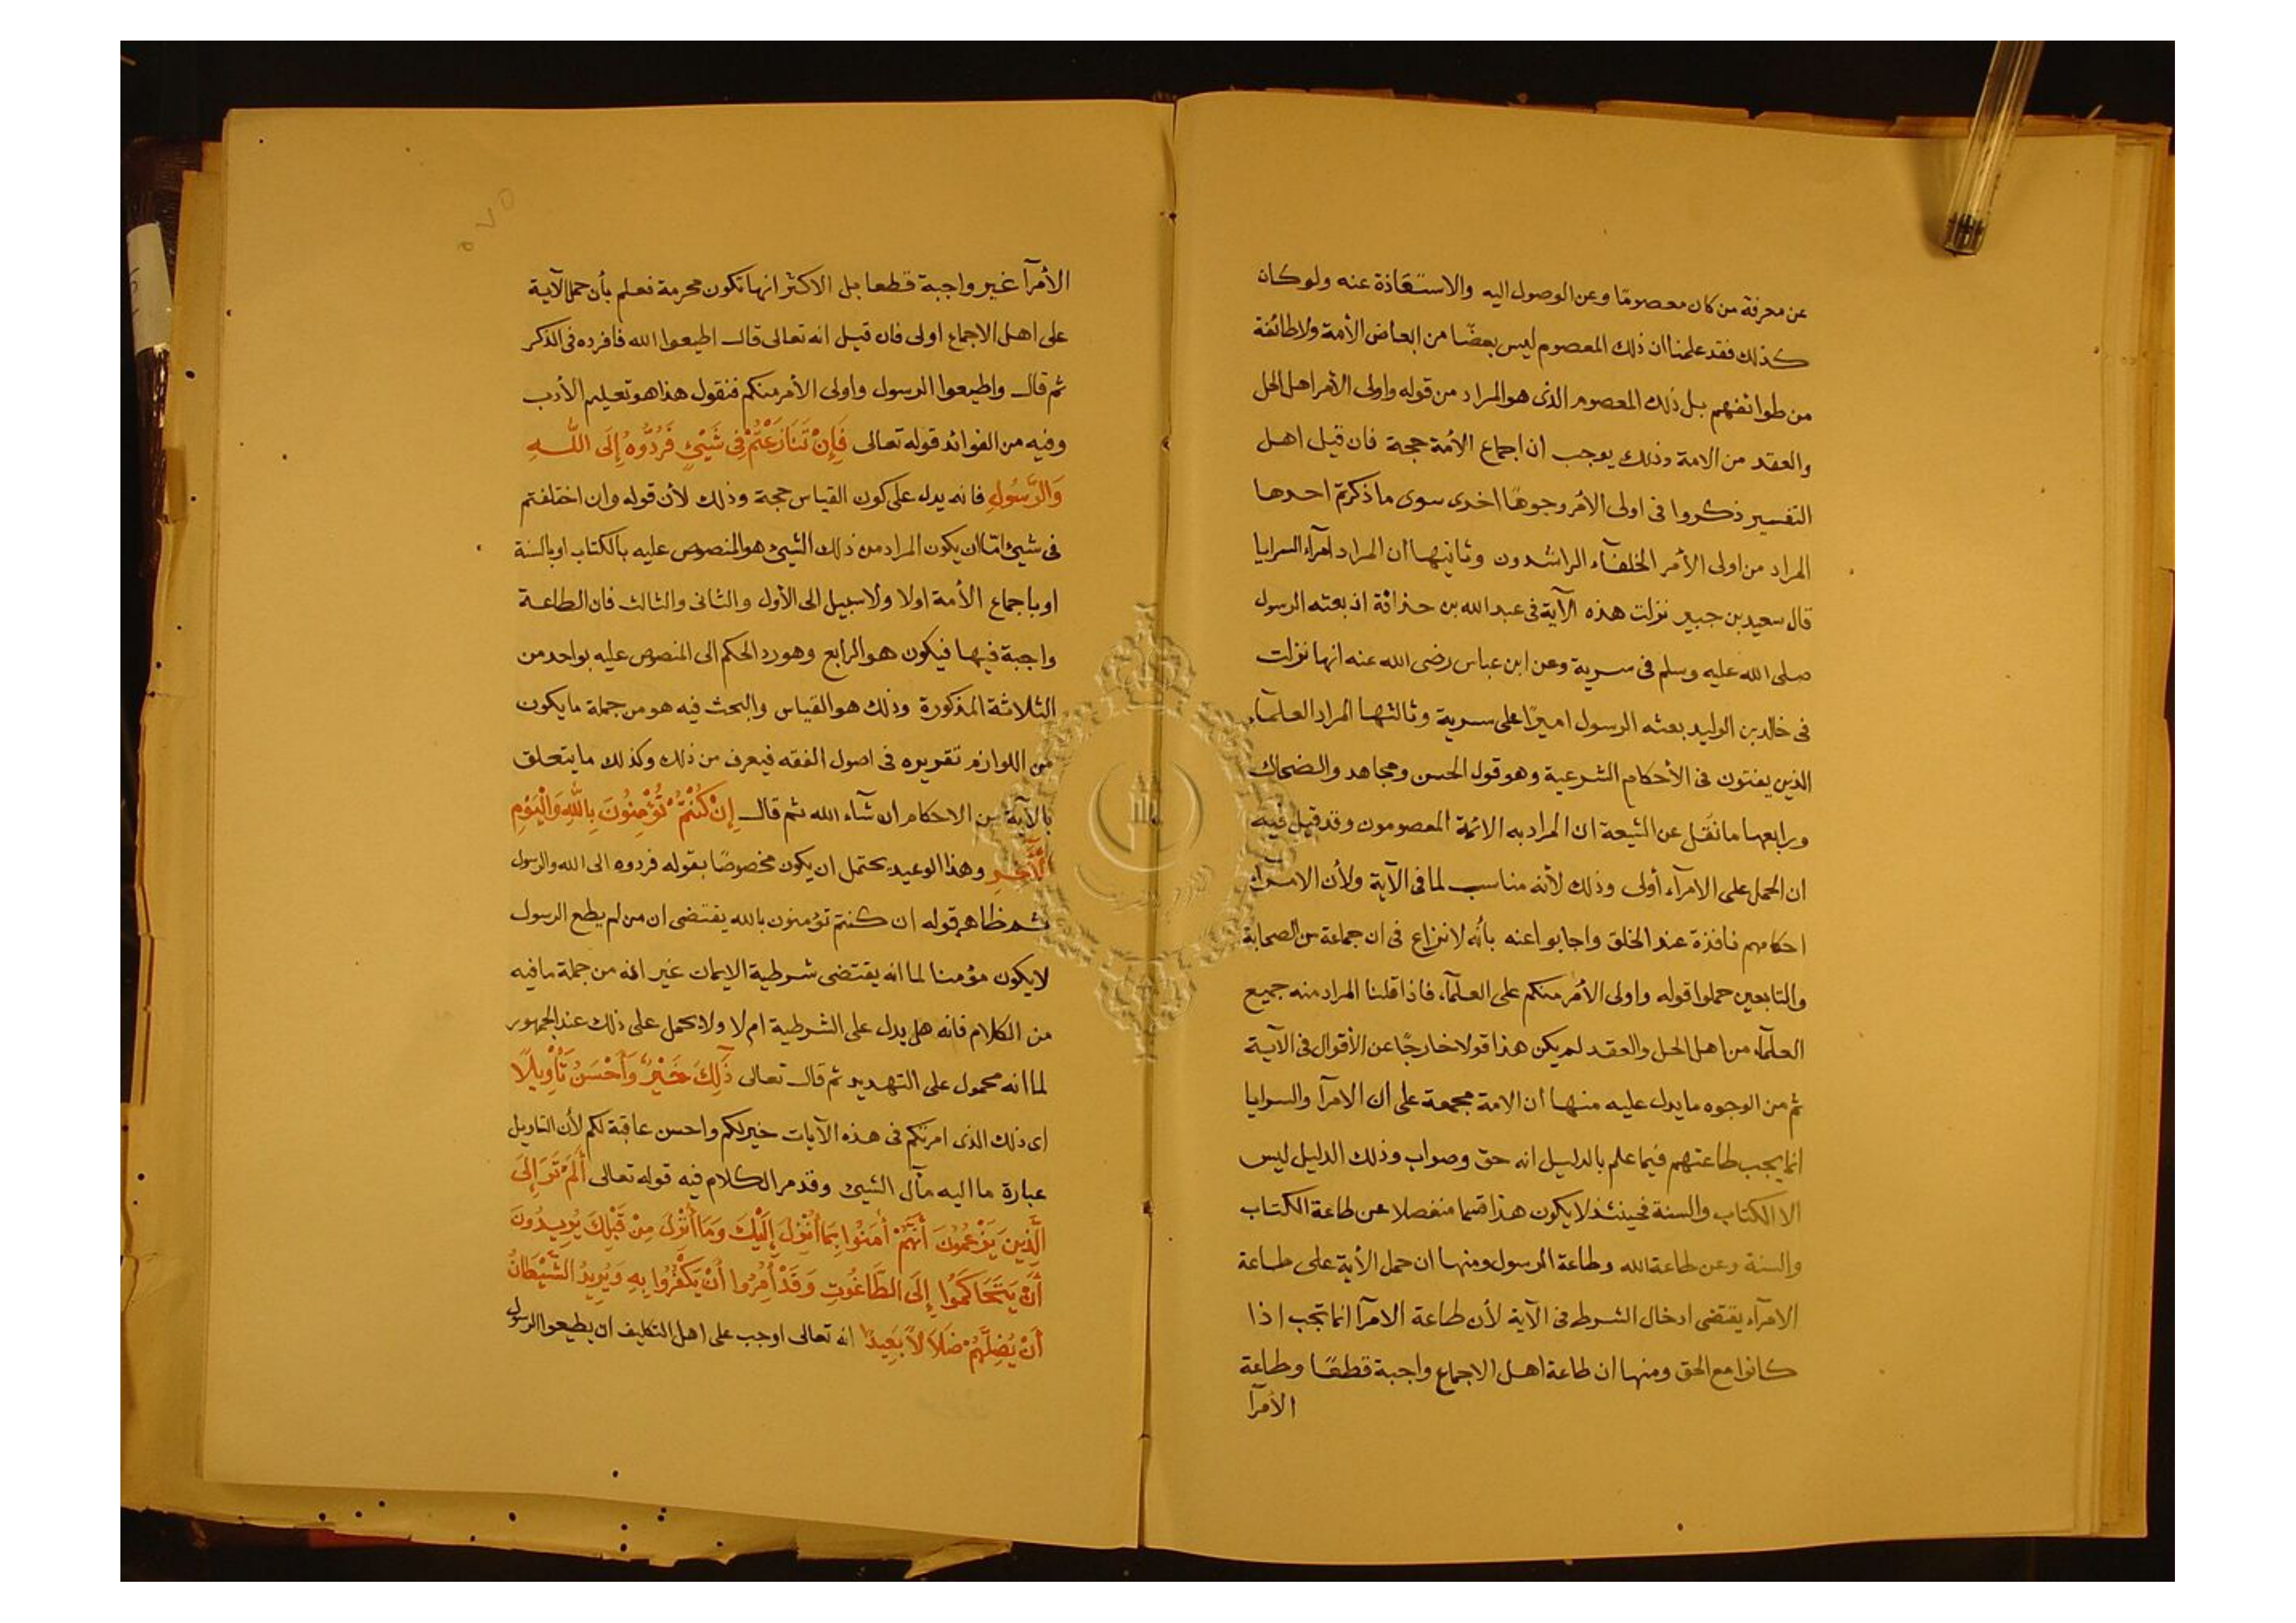 عن معرفة من كان معصومًا وعن الوصول اليه والاستفاذة عنه ولو كان
كذلك فقد علمنا ان ذلك المعصوم ليس بعضًا من ابعاض الأمة ولا طائفة
من طوائفهم بل ذلك المعصوم الذى هو المراد من قوله واولى الأمر اهل الحل
والعقد من الامة وذلك يوجب ان اجماع الأمة حجة فان قيل اهل
التفسير ذكروا فى اولى الأمر وجوهًا اخرى سوى ما ذكرتم احدها
المراد من اولى الأمر الخلفآء الراشدون وثانيها ان المراد امرآء السرايا
قال سعيد بن جبير نزلت هذه الآية فى عبد الله بن حذافة اذ بعثه الرسول
صلى الله عليه وسلم فى سرية وعن ابن عباس رضى الله عنه انها نزلت
فى خالد بن الوليد بعثه الرسول اميرًا على سرية وثالثها المراد العلمآء
الذين يفتون فى الأحكام الشرعية وهو قول الحسن ومجاهد والضحاك
ورابعها ما نقل عن الشيعة ان المراد به الائمة المعصومون وقد قيل فيه
ان الحمل على الامرآء أولى وذلك لأنه مناسب لما فى الآية ولأن الامرآء
احكامهم نافذة عند الخلق واجابوا عنه بأنه لا نزاع فى ان جماعة من الصحابة
والتابعين حملوا قوله واولى الأمر منكم على العلمآء فاذا قلنا المراد منه جميع
العلمآء من اهل الحل والعقد لم يكن هذا قولا خارجًا عن الأقوال فى الآية
ثم من الوجوه ما يدل عليه منها ان الامة مجمعة على ان الامرآ والسرايا
انما يجب طاعتهم فيما علم بالدليل انه حق وصواب وذلك الدليل ليس
الا الكتاب والسنة فحينئذ لا يكون هذا قسما منفصلا عن طاعة الكتاب
والسنة وعن طاعة الله وطاعة الرسول ومنها ان حمل الأية على طاعة
الامرآء يقتضى ادخال الشرط فى الآية لأن طاعة الامرآ انما تجب اذا
كانوا مع الحق ومنها ان طاعة اهل الاجماع واجبة قطعًا وطاعة
الأمرآ
٥٧٥
الأمرآ غير واجبة قطعا بل الاكثر انها تكون محرمة فعلم بأن حمل الآية
على اهل الاجماع اولى فان قيل انه تعالى قال اطيعوا الله فافرده فى الذكر
ثم قال واطيعوا الرسول واولى الأمر منكم فنقول هذا هو تعليم الأدب
وفيه من الفوائد قوله تعالى فَإِنْ تَنَازَعْتُمْ فِى شَيْئٍ فَرُدُّوهُ إِلَى اللَّهِ
وَالرَّسُولِ فانه يدل على كون القياس حجة وذلك لأن قوله وان اختلفتم
فى شيئ اما ان يكون المراد من ذلك الشيئ هو المنصوص عليه بالكتاب او بالسنة
او باجماع الأمة اولا ولا سبيل الى الأول والثانى والثالث فان الطاعة
واجبة فيها فيكون هو الرابع وهو رد الحكم الى المنصوص عليه بواحد من
الثلاثة المذكورة وذلك هو القياس والبحث فيه هو من جملة ما يكون
من اللوازم تقريره فى اصول الفقه فيعرف من ذلك وكذلك ما يتعلق
بالآية من الاحكام ان شآء الله ثم قال إِنْ كُنْتُمْ تُؤْمِنُونَ بِاللَّهِ وَالْيَوْمِ
الْآخِرِ وهذا الوعيد يحتمل ان يكون مخصوصًا بقوله فردوه الى الله والرسول
ثم ظاهر قوله ان كنتم تؤمنون بالله يقتضى ان من لم يطع الرسول
لا يكون مؤمنا لما انه يقتضى شرطية الايمان غير انه من جملة ما فيه
من الكلام فانه هل يدل على الشرطية ام لا ولا يحمل على ذلك عند الجمهور
لما انه محمول على التهديد ثم قال تعالى ذَلِكَ خَيْرٌ وَأَحْسَنُ تَأْوِيلًا
اى ذلك الذى امرتكم فى هذه الآيات خير لكم واحسن عاقبة لكم لأن التاويل
عبارة ما اليه مآل الشيئ وقد مر الكلام فيه قوله تعالى أَلَمْ تَرَ إِلَى
الَّذِينَ يَزْعُمُونَ أَنَّهُمْ أَمَنُوا بِمَا أُنْزِلَ إِلَيْكَ وَمَا أُنْزِلَ مِنْ قَبْلِكَ يُرِيدُونَ
أَنْ يَتَحَاكَمُوا إِلَى الطَّاغُوتِ وَقَدْ أُمِرُوا أَنْ يَكْفُرُوا بِهِ وَيُرِيدُ الشَّيْطَانُ
أَنْ يُضِلَّهُمْ ضَلَالًا بَعِيدًا انه تعالى اوجب على اهل التكليف ان يطيعوا الرسول